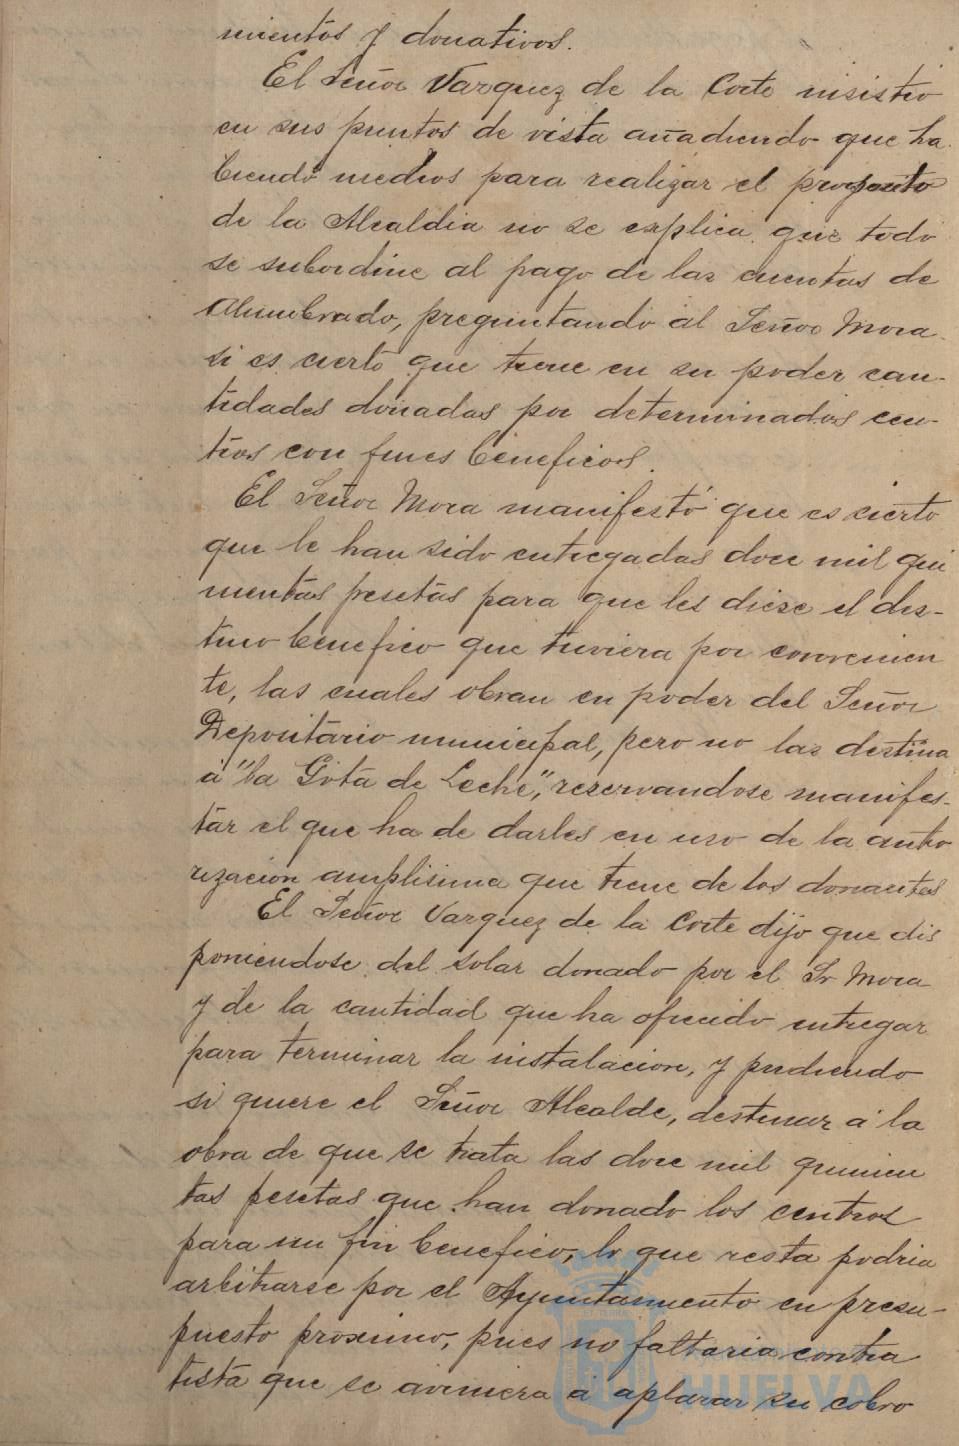 mientos y donativos.
El Señor Vazquez de la Corte insistió
en sus puntos de vista añadiendo que ha-
biendo medios para realizar el proposito
de la Alcaldia no se explica que todo
se subordine al pago de las cuentas de
Alumbrado, preguntando al Señor Mora
si es cierto que tiene en su poder can-
tidades donadas por determinados cen-
tros con fines beneficos.
El Señor Mora manifestó que es cierto
que le han sido entregadas doce mil qui
nientas pesetas para que les diese el des-
tino benefico que tuviera por convenien
te, las cuales obran en poder del Señor
Depositario municipal, pero no las destina
a "la Gota de Leche", reservandose manifes-
tar el que ha de darles en uso de la auto
rizacion amplisima que tiene de los donantes
El Señor Vazquez de la Corte dijo que dis
poniendose del solar donado por el Sr Mora
y de la cantidad que ha ofrecido entregar
para terminar la instalacion, y pudiendo
si quiere el Señor Alcalde, destinar a la
obra de que se trata las doce mil quinien
tas pesetas que han donado los centros
para un fin benefico, lo que resta podria
arbitrarse por el Ayuntamiento en presu-
puesto proximo, pues no faltaria contra
tista que se aviniera a aplazar su cobro
HUELVA